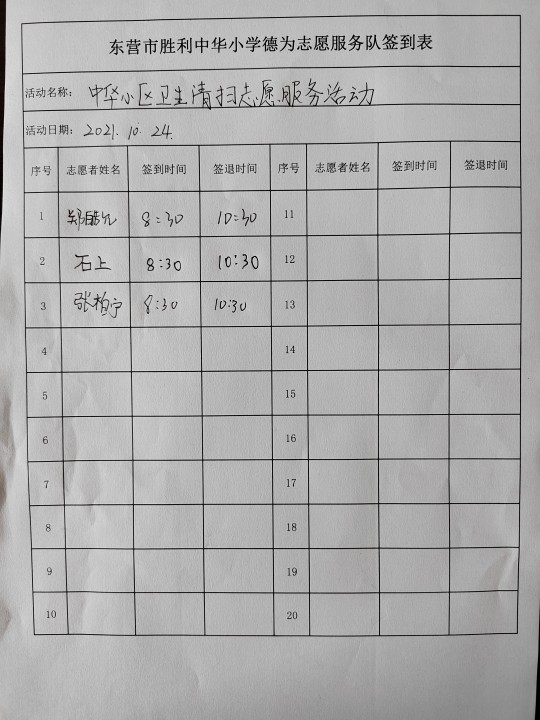 东营市胜利中华小学德为志愿服务队签到表
活动名称： 中华小区卫生清扫志愿服务活动
活动日期： 2021.10.24.
序号 志愿者姓名 签到时间 签退时间 序号 志愿者姓名 签到时间 签退时间
1 郑 8:30 10:30 11
2 石上 8:30 10:30 12
3 张柏宁 8:30 10:30 13
4 14
5 15
6 16
7 17
8 18
9 19
10 20